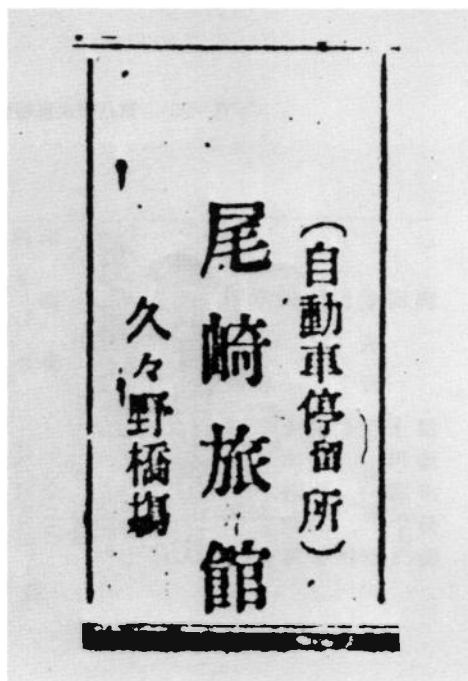 (自動車停留所)
尾崎旅館
久々野橋場